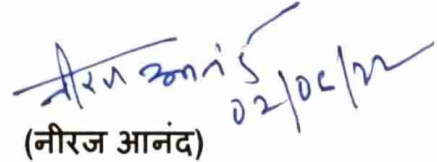 नीरज आनंद
02/06/22
(नीरज आनंद)